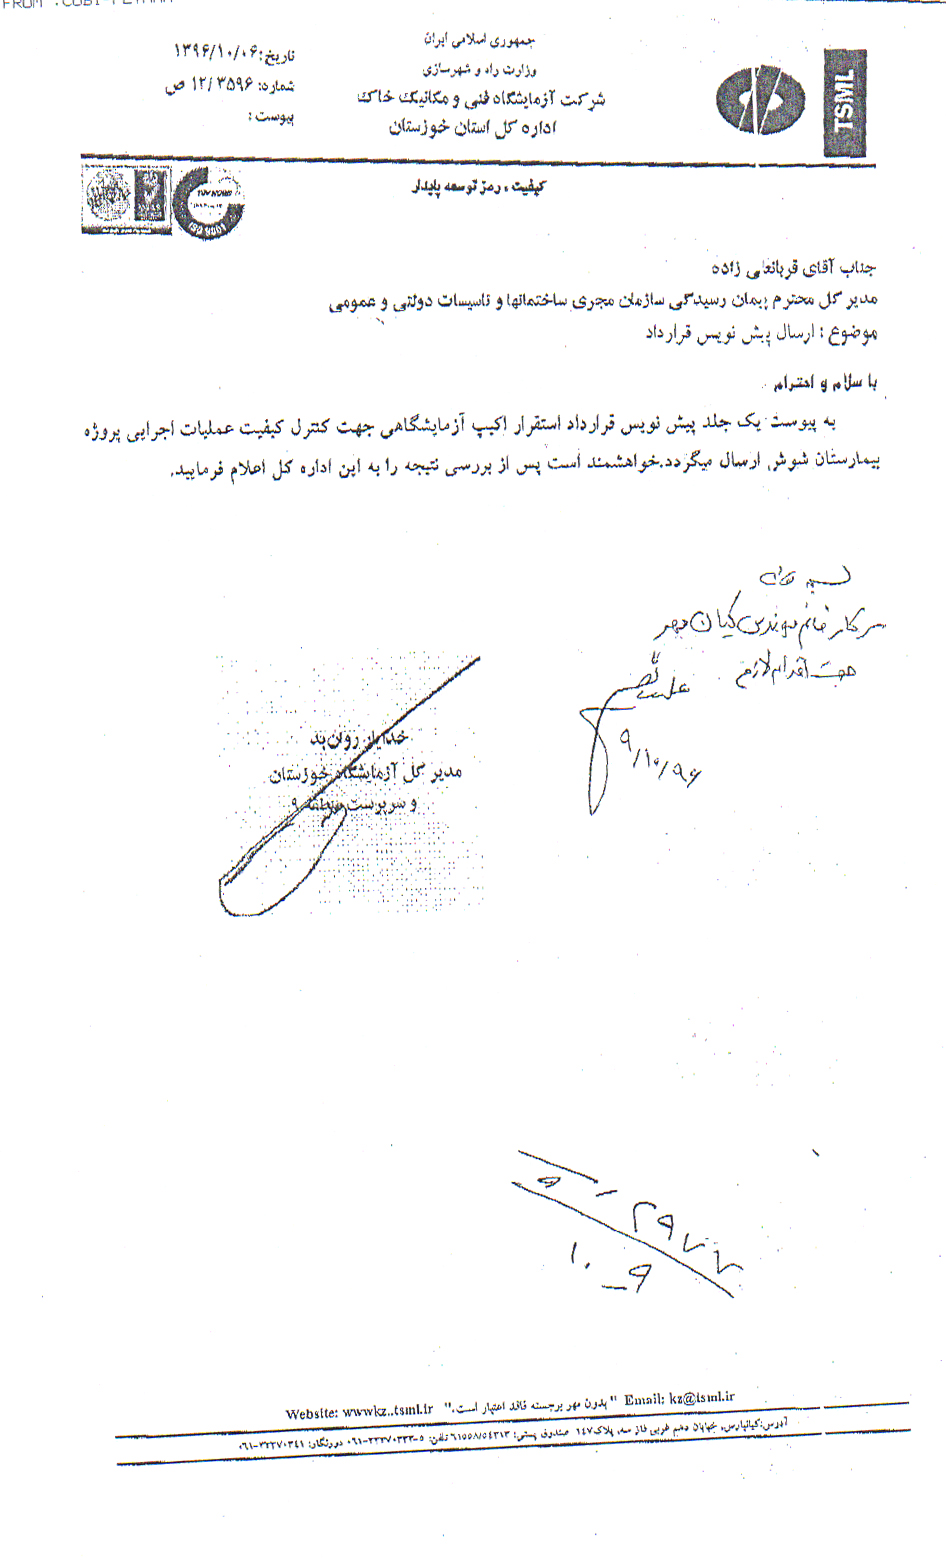 جمهوری اسلامی ایران
وزارت راه و شهرسازی
شرکت آزمایشگاه فنی و مکانیک خاک
اداره کل استان خوزستان
تاریخ: ۱۳۹۶/۱۰/۰۶
شماره: ۱۲/۳۵۹۶ ص
پیوست :
TSML
کیفیت ، رمز توسعه پایدار
ISO 9001
جناب آقای قربانعلی زاده
مدیر کل محترم پیمان رسیدگی سازمان مجری ساختمانها و تاسیسات دولتی و عمومی
موضوع : ارسال پیش نویس قرارداد
با سلام و احترام
به پیوست یک جلد پیش نویس قرارداد استقرار اکیپ آزمایشگاهی جهت کنترل کیفیت عملیات اجرایی پروژه
بیمارستان شوش ارسال میگردد.خواهشمند است پس از بررسی نتیجه را به این اداره کل اعلام فرمایید.
سرکار خانم مهندس کیان مهر
جهت اقدام لازم
۹/۱۰/۹۶
خدایار روان بد
مدیر کل آزمایشگاه خوزستان
و سرپرست منطقه ۹
۲۹۷۷
۱۰-۹
Website: wwwkz..tsml.ir "بدون مهر برجسته فاقد اعتبار است." Email: kz@tsml.ir
آدرس:کیانپارس، خیابان دهم غربی فاز سه، پلاک۱۴۷ صندوق پستی: ۶۱۵۵۸/۷۵۴۳۱۳ تلفن: ۵-۳۳۳۷۰۳۳۳-۰۶۱ دورنگار: ۳۳۳۷۰۳۴۱-۰۶۱